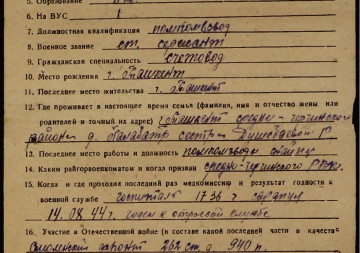 5. Образование
6. На ВУС 1
7. Должностная квалификация помкомвзвод
8. Военное звание ст. сержант
9. Гражданская специальность счетовод
10. Место рождения г. Ташкент
11. Последнее место жительства г. Ташкент
12. Где проживает в настоящее время семья (фамилия, имя и отчество жены или
родителей и точный их адрес) г. Ташкент средне-чирчикский
район д. сестра
13. Последнее место работы и должность помкомвзвода
14. Каким райгорвоенкоматом и когда признан средне-чирчикского РВК
15. Когда и где проходил последний раз медкомиссию и результат годности к
военной службе госпиталь 1736 г. Сарапул
14.08.44 г. годен к строевой службе
16. Участие в Отечественной войне (в составе какой последней части и в качестве
фронт 262 ст. д. 940 п.